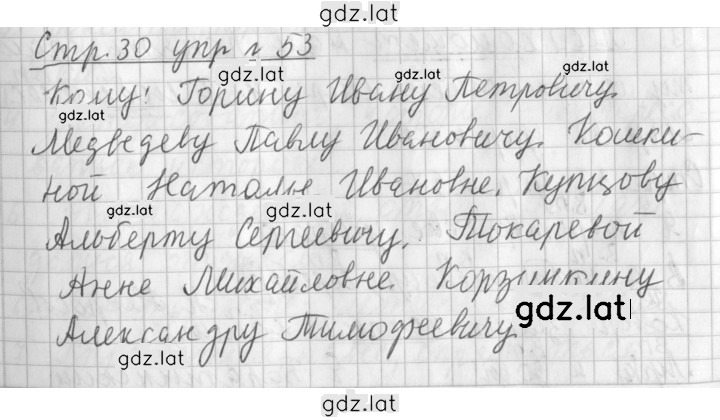 gdz.lat
Стр. 30 упр № 53
gdz.lat
gdz.lat
gdz.lat
Кому: Горину Ивану Петровичу.
gdz.lat
Медведеву Павлу Ивановичу. Кошки-
ной Наталье Ивановне. Купцову
gdz.lat
gdz.lat
Альберту Сергеевичу. Токаревой
Анне Михайловне. Корзинкину
gdz.lat
Александру Тимофеевичу.
gdz.lat
gdz.lat